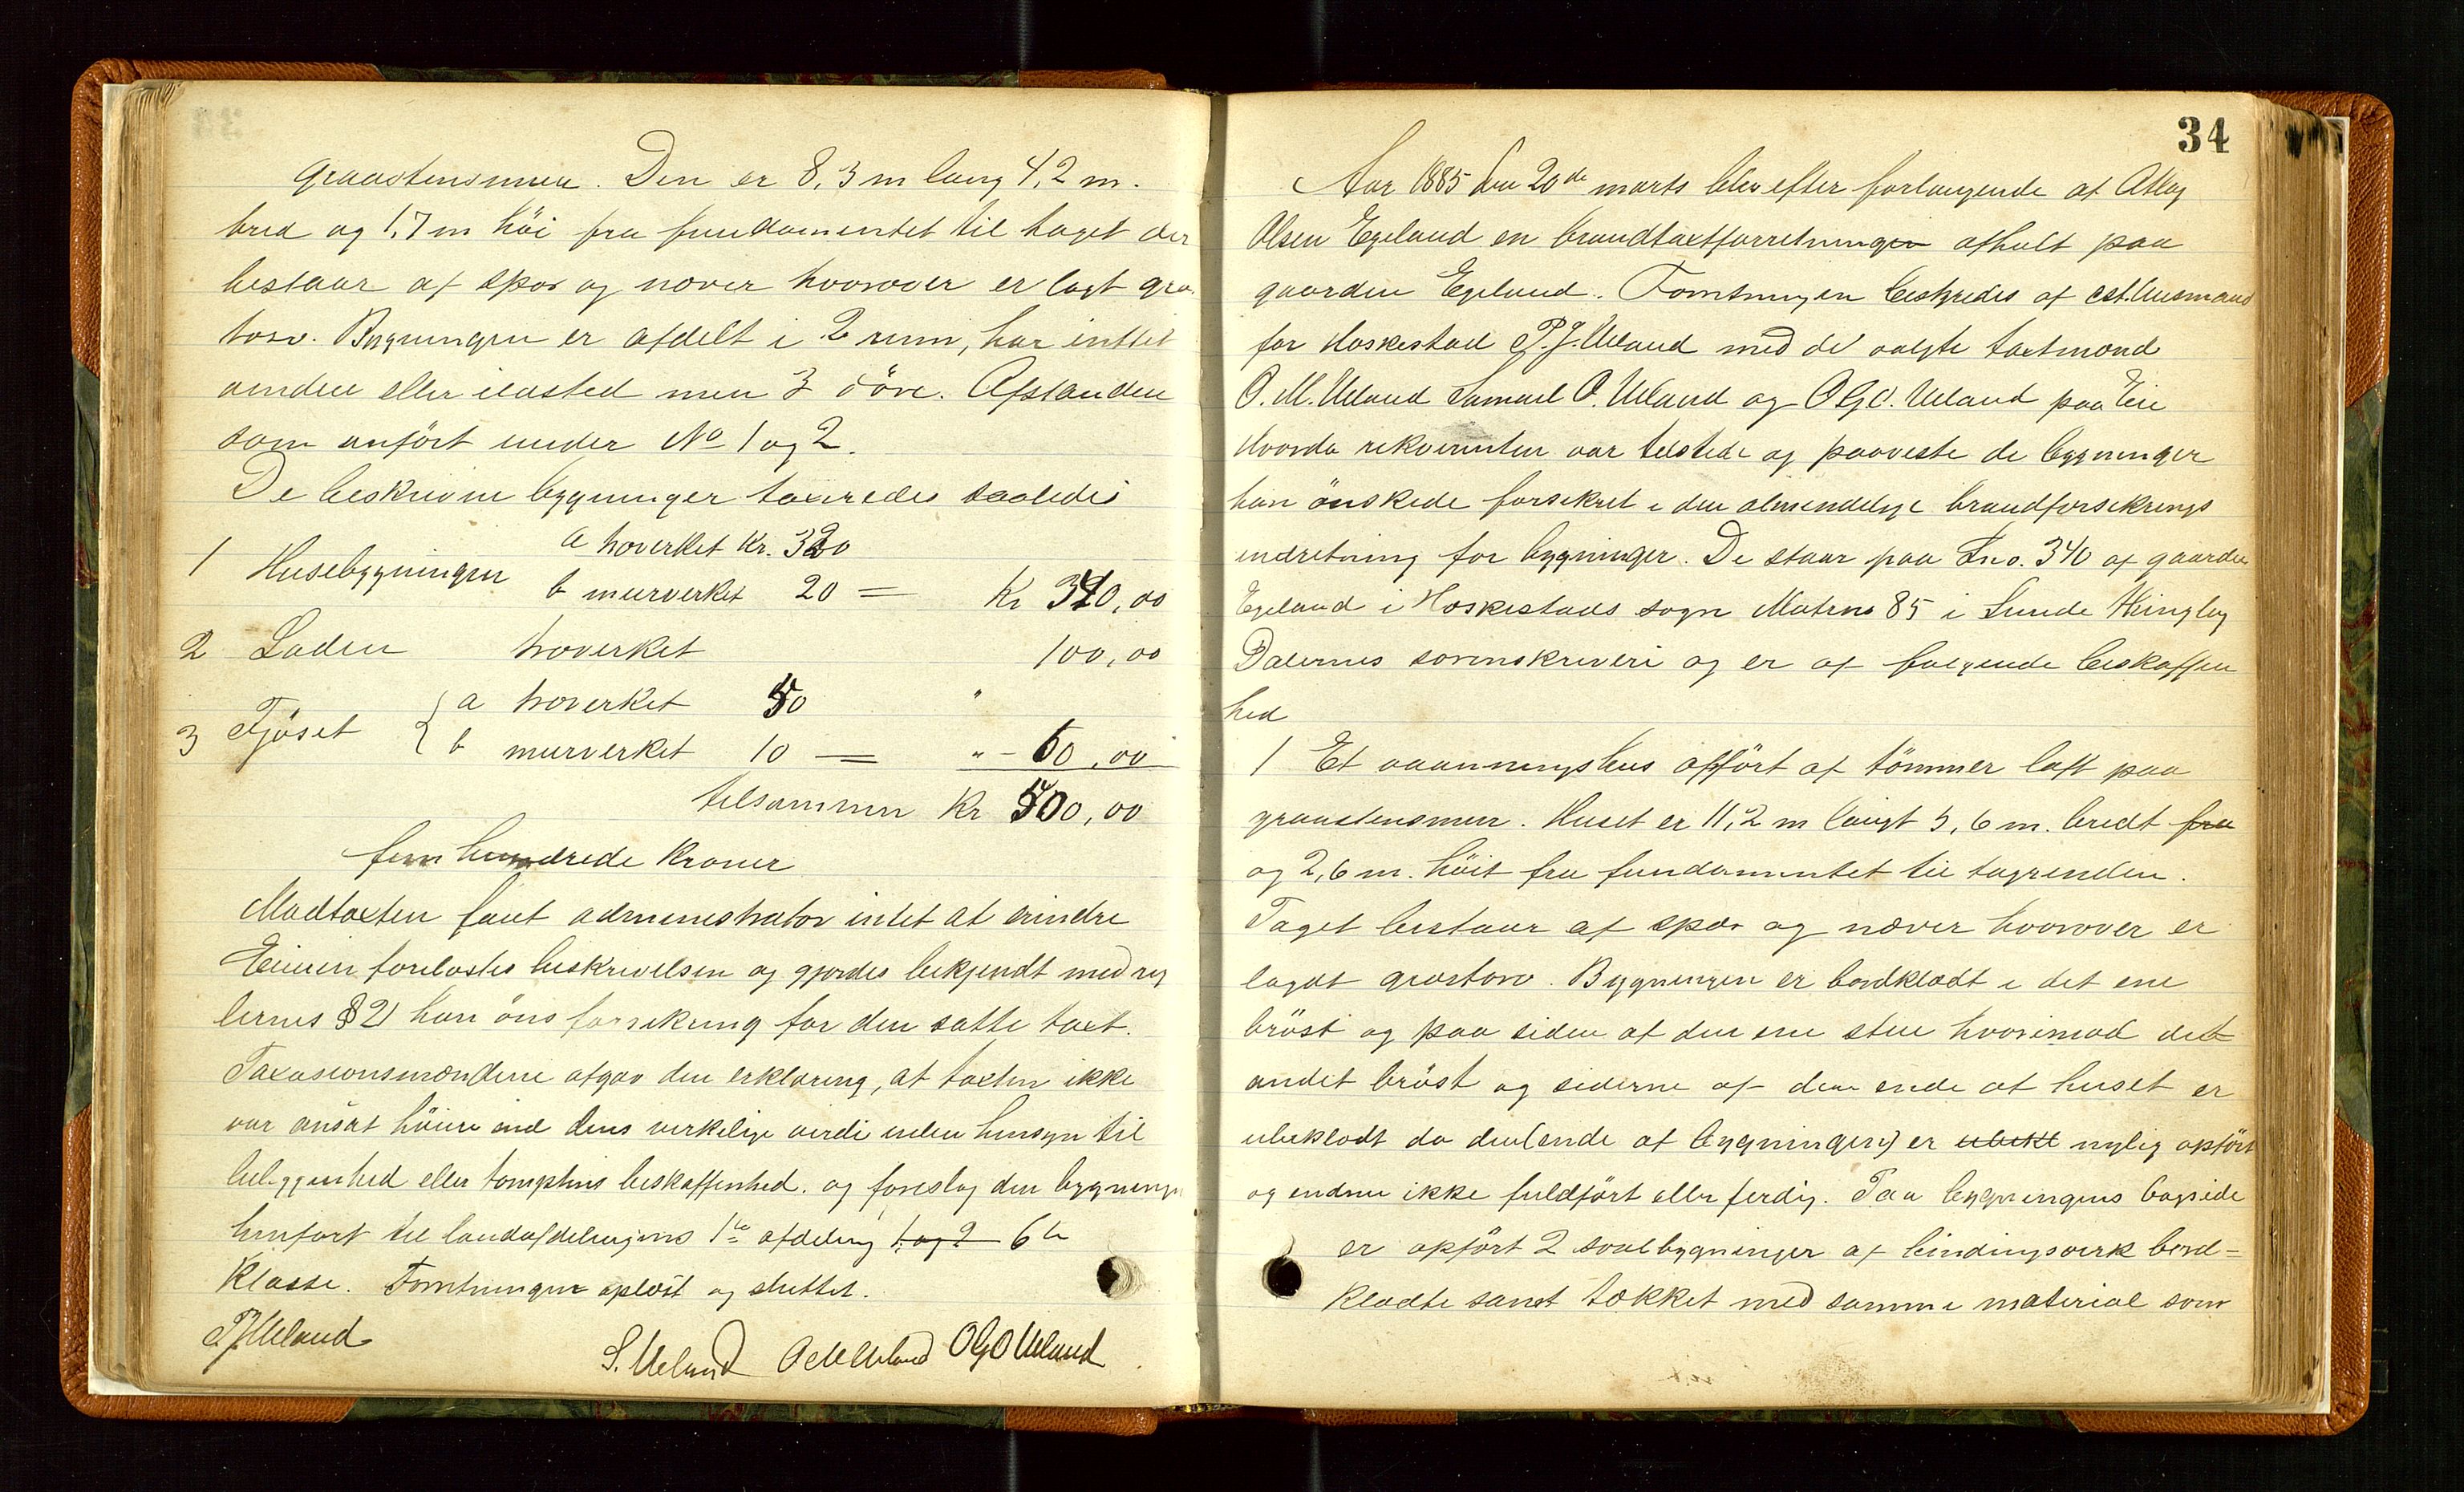 graastensmur. Den er 8,3 m lang 4,2 m.
bred og 1,7 m höi fra fundamentet til taget der
bestaar af spær og næver hvorover er lagt græs
torv. Bygningen er afdelt i 2 rum, har intet
vindu eller ildsted men 3 döre. Afstanden
som anfört under No 1 og 2.
De beskrivne bygninger taxeredes saaledes
1 Husebygningen a træverket Kr. 320
b murverket 20 = Kr 340,00
2 Laden træverket 100,00
3 Fjöset { a træverket 50 "
b murverket 10 = " - 60,00
tilsammen Kr 500,00
fem hundrede Kroner
Modtaxten fant administrator intet at erindre
Eieren forelæstes beskrivelsen og gjordes bekjendt med reg
lernes § 21 han öns forsikring for den satte taxt.
Taxasionsmændene afgav den erklæring, at taxten ikke
var ansat höiere end dens virkelige verdi uden hensyn til
beliggenhed eller tomptens beskaffenhed. og foreslog den bygninge
henfört til landafdelingens 1te afdeling 1 og 2 6te
Klasse. Forretningen oplæst og sluttet.
P J Ueland
S. Ueland O M Ueland O G O Ueland
34
Aar 1885 den 20de marts blev efter forlangende af Atlag
Olsen Egeland en brandtaxtforretningen afholt paa
gaarden Egeland. Forretningen bestyredes af cst. lensmand
for Heskestad P. J. Ueland med de valgte taxtmænd
O. M. Ueland Samuel O. Ueland og O G O. Ueland paa Eie
Hvorda rekvirenten var tilstede og paaviste de bygninger
han önskede forsikret i den almindelige brandforsikrings
indretning for bygninger. De staar paa Lno. 340 af gaarden
Egeland i Heskestads sogn Matrno 85 i Lunde thinglag
Dalernes sorenskriveri og er af fölgende beskaffen
hed
1 Et vaaningshus opfört af tömmer laft paa
graastensmur. Huset er 11,2 m langt 5,6 m. bredt fra
og 2,6 m. höit fra fundamentet til tagrenden.
Taget bestaar af spær og næver hvorover er
lagdt græstorv. Bygningen er bordklædt i det ene
bröst og paa siden af den ene stue hvorimod det
andet bröst og siderne af den ende af huset er
ubeklædt da den (ende af bygningen) er ubekl nylig opfört
og endnu ikke fuldfört eller ferdig. Paa bygningens bagside
er opfört 2 svalbygninger af bindingsverk bord=
klædte samt tækket med samme material som